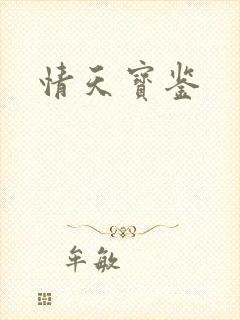 情天寶鉴
牟敏